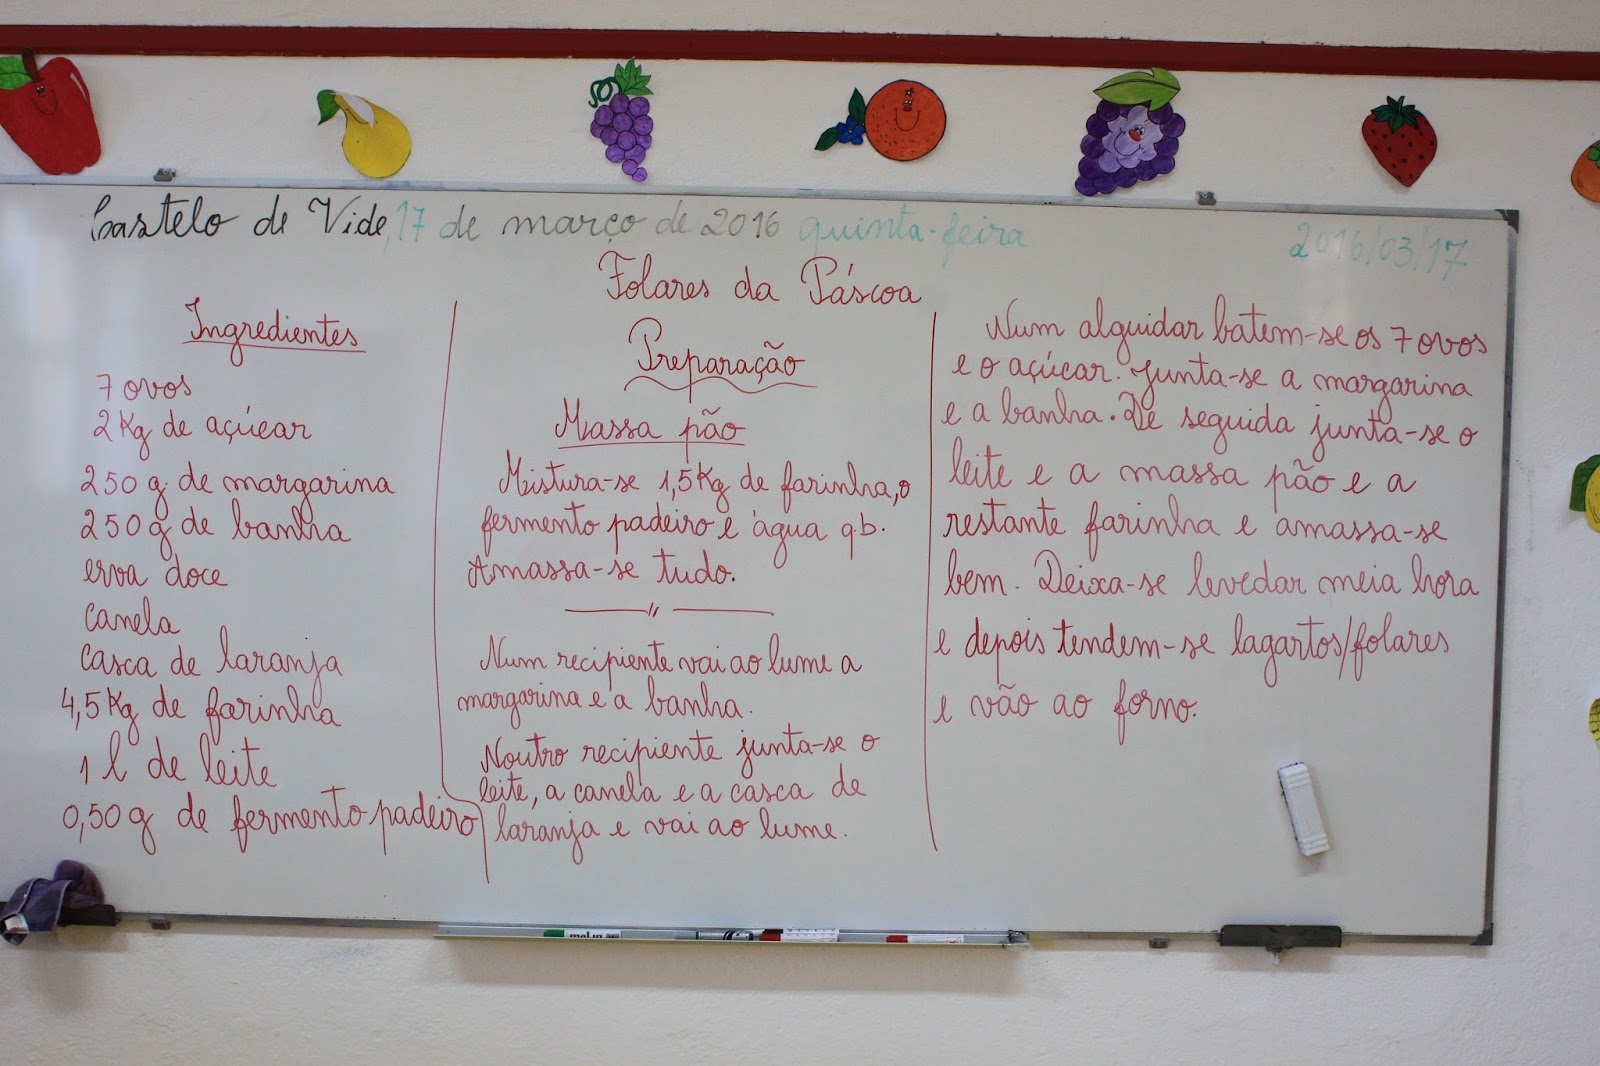 Castelo de Vide, 17 de março de 2016 quinta-feira
2016/03/17
Folares da Páscoa
Ingredientes
7 ovos
2 Kg de açúcar
250 g. de margarina
250 g de banha
erva doce
canela
casca de laranja
4,5 Kg de farinha
1 l de leite
0,50 g de fermento padeiro
Preparação
Massa pão
Mistura-se 1,5 Kg de farinha, o
fermento padeiro e água q.b.
Amassa-se tudo.
Num recipiente vai ao lume a
margarina e a banha.
Noutro recipiente junta-se o
leite, a canela e a casca de
laranja e vai ao lume.
Num alguidar batem-se os 7 ovos
e o açúcar. Junta-se a margarina
e a banha. De seguida junta-se o
leite e a massa pão e a
restante farinha e amassa-se
bem. Deixa-se levedar meia hora
e depois tendem-se lagartos/folares
e vão ao forno.